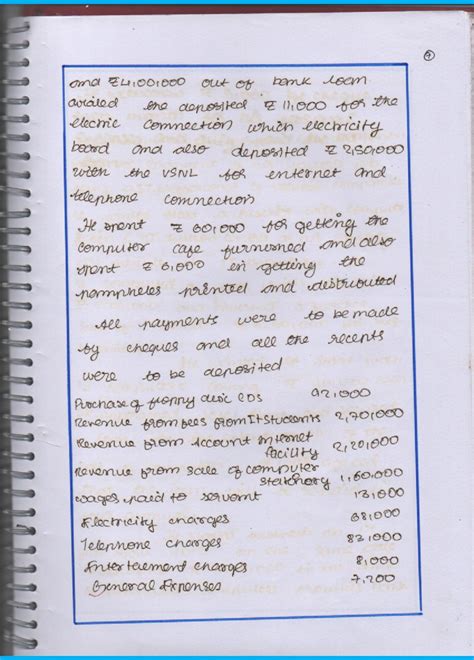 and ₹4,00,000 out of bank loan
avialed the deposited ₹ 11,000 for the
electric connection which electricity
board and also deposited ₹ 2,50,000
with the VSNL for enternet and
telephone connection
He spent ₹ 60,000 for getting the
computer cafe furnished and also
spent ₹ 6,000 in getting the
pamphletes printed and distributed
All payments were to be made
by cheques and all the recepts
were to be deposited
Purchase of floppy disc CDS 92,000
Revenue from fees from It students 2,70,000
Revenue from Account Internet
facility 2,20,000
Revenue from sale of computer
stationary 1,60,000
wages paid to servant 13,000
Electricity charges 68,000
Telephone charges 82,000
Entertement charges 8,000
General Expenses 7,200